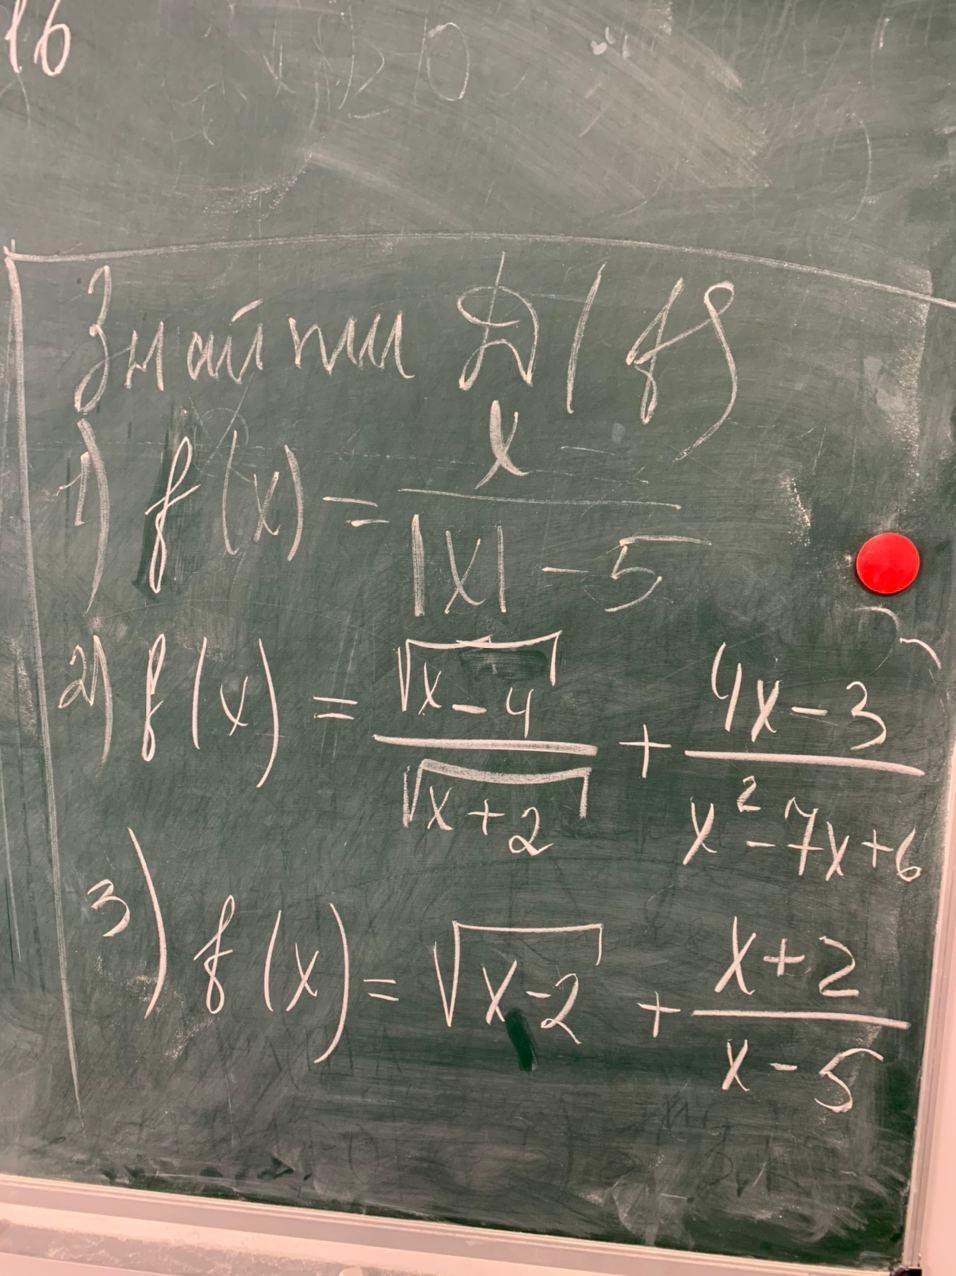 16
Знайти D(f)
1) f(x) = x / (|x| - 5)
2) f(x) = √(x - 4) / √(x + 2) + (4x - 3) / (x² - 7x + 6)
3) f(x) = √(x - 2) + (x + 2) / (x - 5)